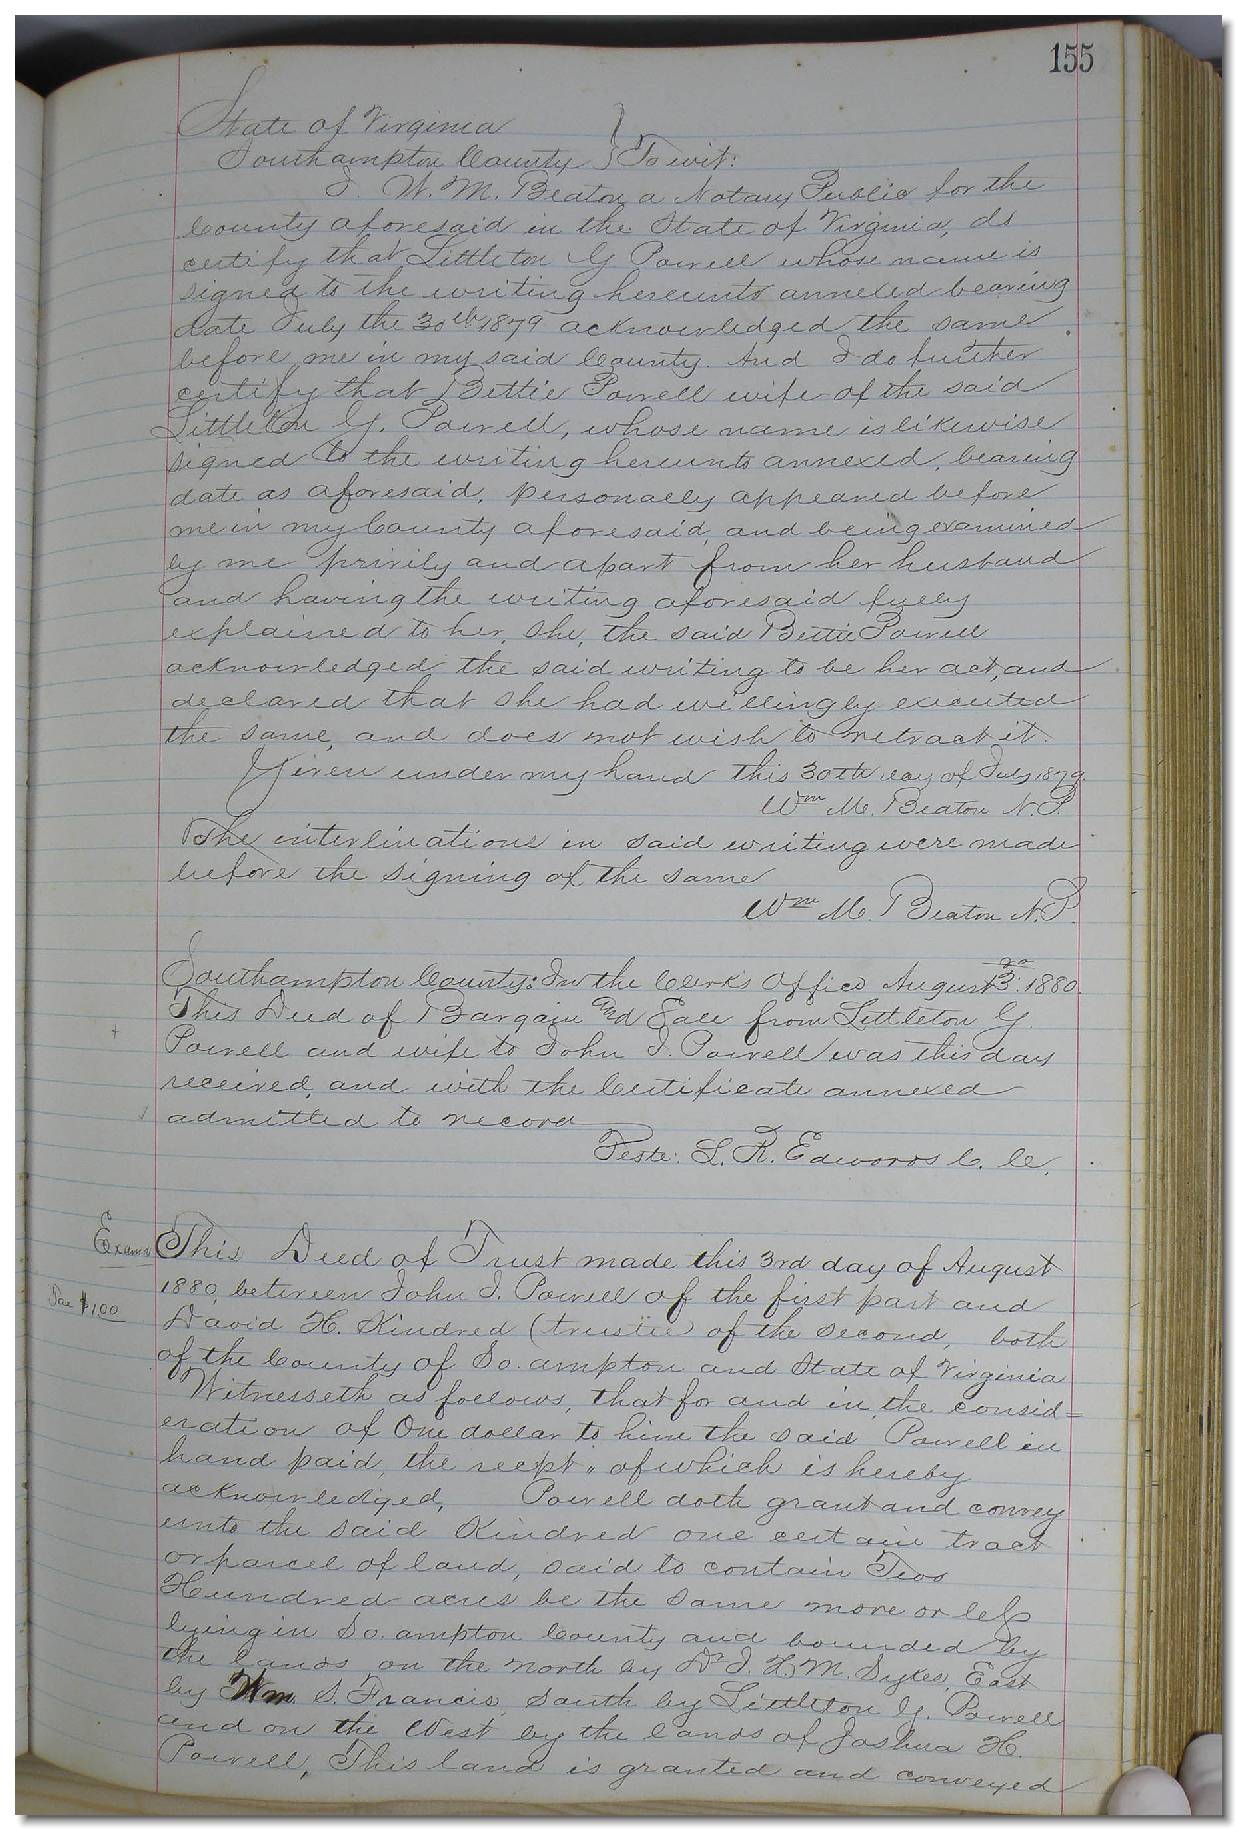 155
State of Virginia
Southampton County } To wit:
I W. M. Beaton a Notary Public for the
County aforesaid in the State of Virginia, do
certify that Littleton G Powell whose name is
signed to the writing hereunto annexed bearing
date July the 30th 1879 acknowledged the same
before me in my said County. And I do further
certify that Bettie Powell wife of the said
Littleton G. Powell, whose name is likewise
signed to the writing hereunto annexed, bearing
date as aforesaid, personally appeared before
me in my County aforesaid, and being examined
by me privily and apart from her husband
and having the writing aforesaid fully
explained to her, she, the said Bettie Powell
acknowledged the said writing to be her act, and
declared that she had willingly executed
the same, and does not wish to retract it.
Given under my hand this 30th day of July 1879.
Wm M. Beaton N.P.
The interlinations in said writing were made
before the signing of the same
Wm M. Beaton N.P.
Southampton County: In the Clerk's Office August 3rd 1880.
This Deed of Bargain and Sale from Littleton G.
Powell and wife to John J. Powell was this day
received, and with the Certificate annexed
admitted to record
Teste: L. R. Edwards C. C.
Examd This Deed of Trust made this 3rd day of August
1880, between John J. Powell of the first part and
$100
David H. Kindred (trustee) of the second, both
of the County of So.ampton and State of Virginia
Witnesseth as follows, that for and in the consid=
eration of One dollar to him the said Powell in
hand paid, the recpt. of which is hereby
acknowledged, Powell doth grant and convey
unto the said Kindred one certain tract
or parcel of land, said to contain Two
Hundred acres be the same more or less
lying in So.ampton County and bounded by
the lands on the north by Dr J. L. M. Sykes, East
by Wm. S. Francis, south by Littleton G. Powell
and on the West by the lands of Joshua H.
Powell, This land is granted and conveyed